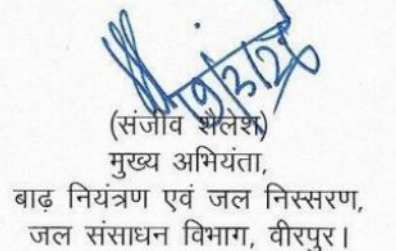 (संजीव शैलेश)
मुख्य अभियंता,
बाढ़ नियंत्रण एवं जल निस्सरण,
जल संसाधन विभाग, वीरपुर।